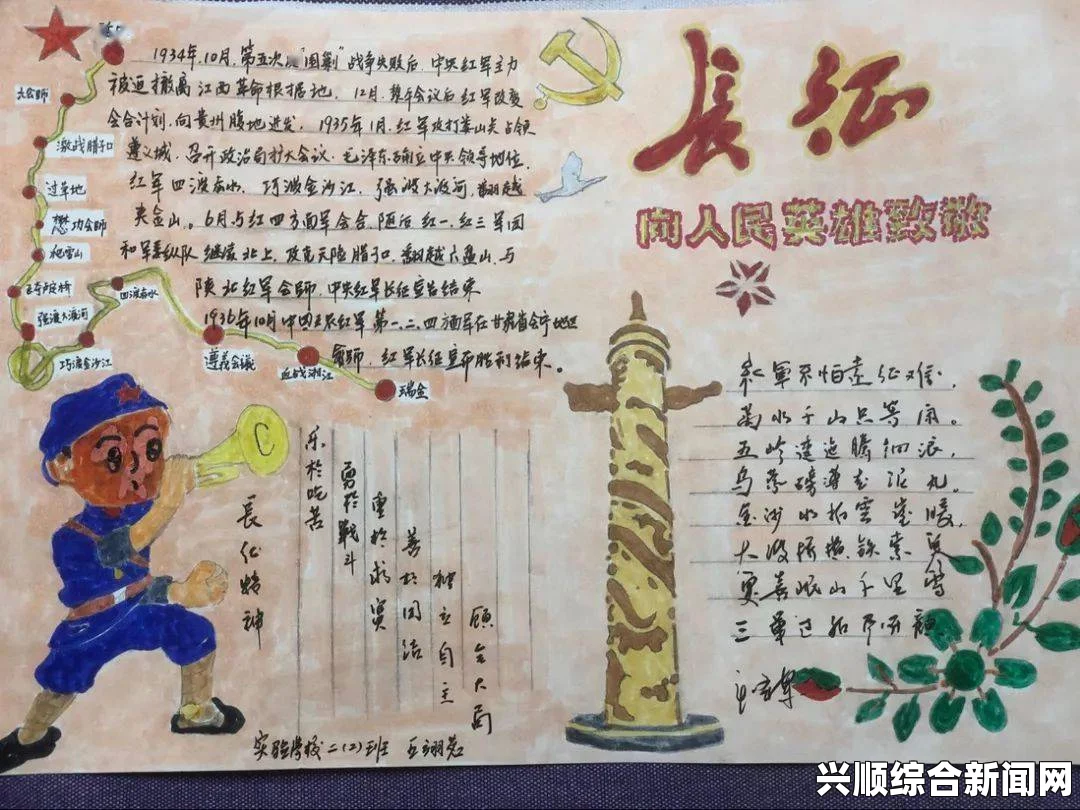 长征
向人民英雄致敬
1934年10月,第五次反"围剿"战争失败后,中央红军主力
被迫撤离江西革命根据地,12月,黎平会议后红军改变
会合计划,向贵州腹地进发,1935年1月,红军攻打娄山关占领
遵义城,召开政治局扩大会议,毛泽东确立中央领导地位,
红军四渡赤水,巧渡金沙江,强渡大渡河,翻越
夹金山。6月与红四方面军会合,随后红一、红三军团
和军委纵队继续北上,攻克天险腊子口,翻越六盘山,与
陕北红军会师,中央红军长征宣告结束
1936年10月中国工农红军第一、二、四方面军在甘肃省会宁地区
会师,红军长征宣布胜利结束。
大会师
激战腊子口
过草地
懋功会师
爬雪山
飞夺泸定桥
强渡大渡河
巧渡金沙江
四渡赤水
遵義会議
血战湘江
瑞金
長征精神
乐於吃苦
勇於戰斗
重於求實
善於团结
独立自主
顾全大局
紅軍不怕遠征难,
萬水千山只等闲。
五岭逶迤腾细浪,
乌蒙磅礴走泥丸。
金沙水拍雲崖暖,
大渡桥横铁索寒
更喜岷山千里雪
三軍过后尽开颜
实验学校二(2)班
兴顺综合新闻网